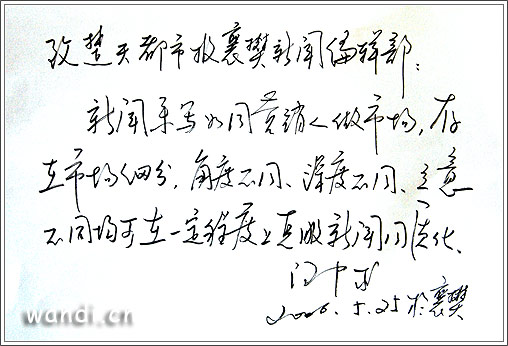 致楚天都市报襄樊新闻编辑部:
新闻采写如同营销人做市场,存
在市场细分,角度不同、深度不同、立意
不同均可在一定程度上克服新闻同质化、
2006.5.25於襄樊
wandi.cn